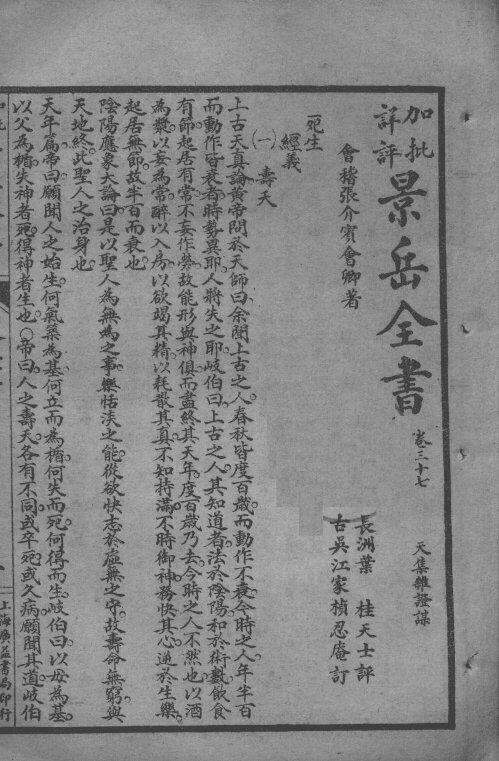 加批
詳評
景岳全書
卷三十七
天集雜證謨
會稽張介賓會卿著
長洲葉 桂天士評
古吳江家楨忍庵訂
死生
經義
(一) 壽夭
上古天真論黃帝問於天師曰余聞上古之人春秋皆度百歲而動作不衰今時之人年半百
而動作皆衰者時勢異耶人將失之耶岐伯曰上古之人其知道者法於陰陽和於術數飲食
有節起居有常不妄作勞故能形與神俱而盡終其天年度百歲乃去今時之人不然也以酒
為漿以妄為常醉以入房以欲竭其精以耗散其真不知持滿不時御神務快其心逆於生樂
起居無節故半百而衰也
陰陽應象大論曰是以聖人為無為之事樂恬淡之能從欲快志於虛無之守故壽命無窮與
天地終此聖人之治身也
天年篇帝曰願聞人之始生何氣築為基何立而為楯何失而死何得而生岐伯曰以母為基
以父為楯失神者死得神者生也○帝曰人之壽夭各有不同或卒死或久病願聞其道岐伯
上海廣益書局印行